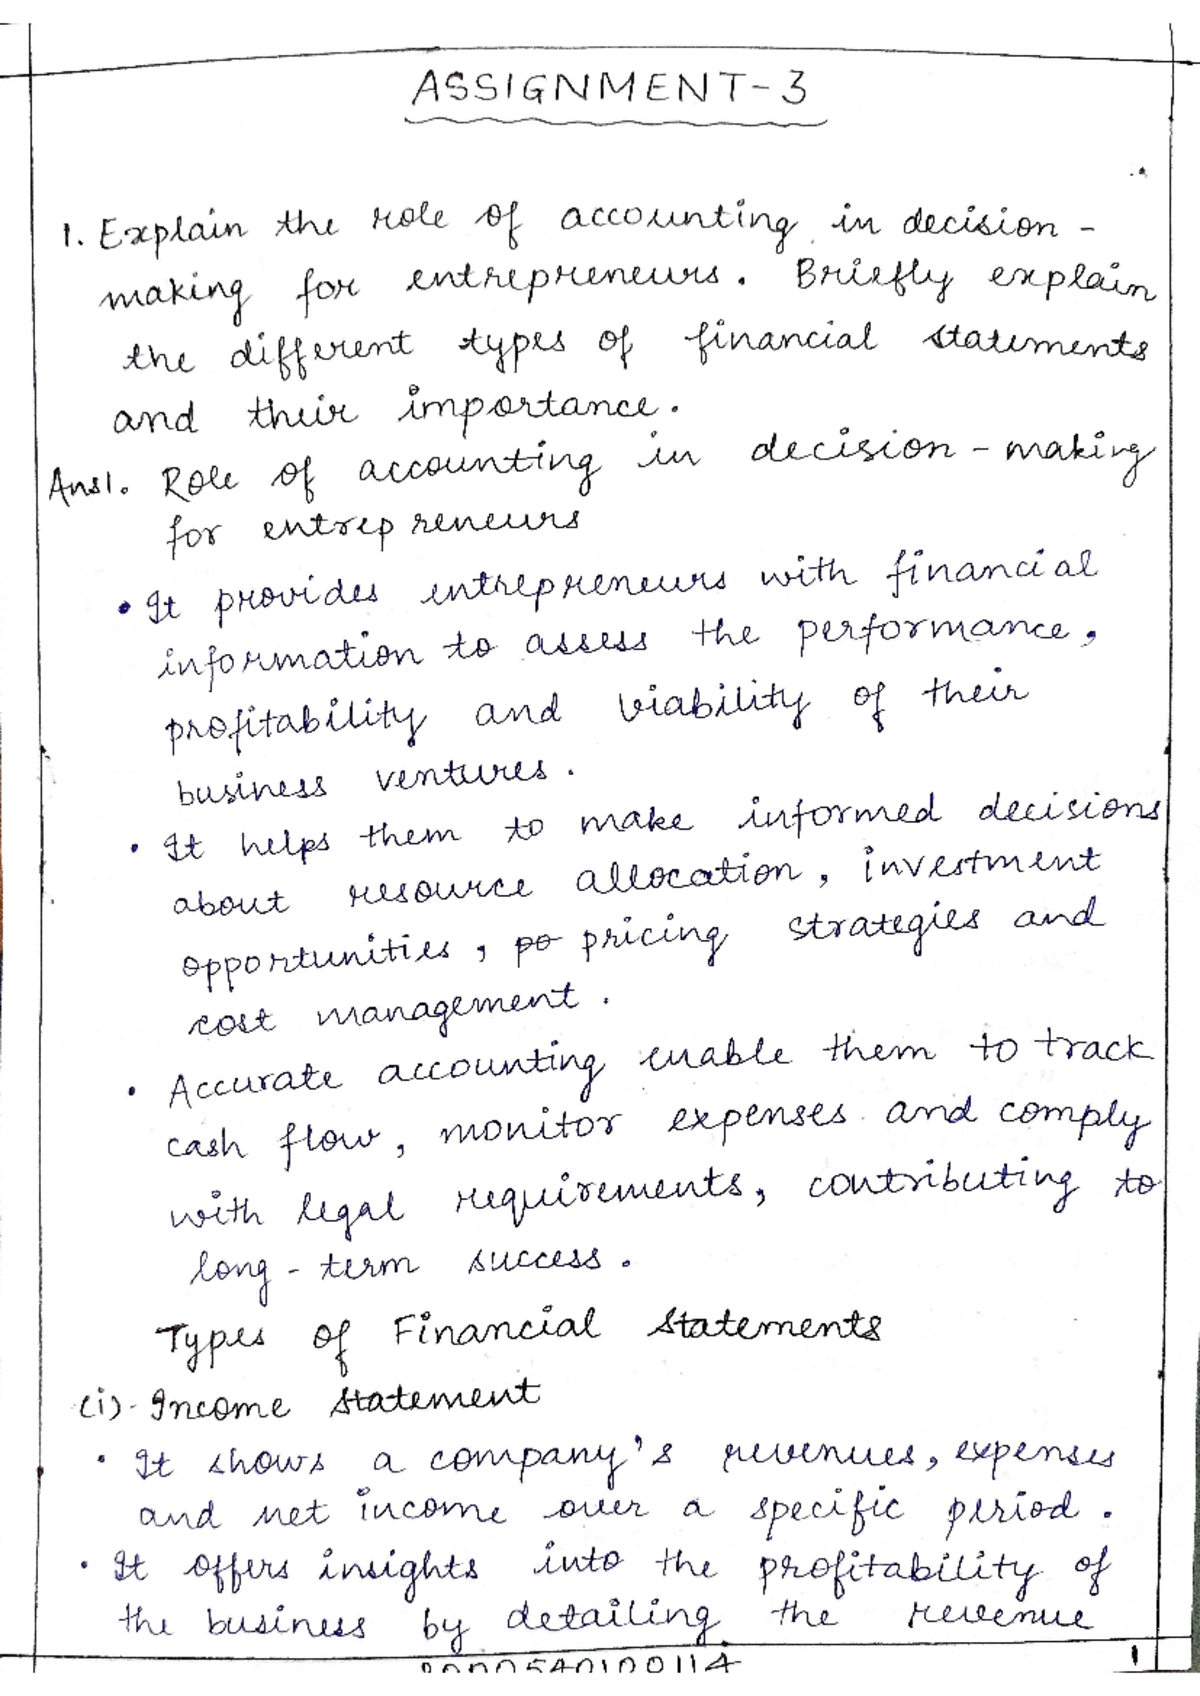 ASSIGNMENT-3
1. Explain the role of accounting in decision-
making for entrepreneurs. Briefly explain
the different types of financial statements
and their importance.
Ans1. Role of accounting in decision-making
for entrepreneurs
• It provides entrepreneurs with financial
information to assess the performance,
profitability and viability of their
business ventures.
• It helps them to make informed decisions
about resource allocation, investment
opportunities, po pricing strategies and
cost management.
• Accurate accounting enable them to track
cash flow, monitor expenses and comply
with legal requirements, contributing to
long-term success.
Types of Financial Statements
(i). Income Statement
• It shows a company's revenues, expenses
and net income over a specific period.
• It offers insights into the profitability of
the business by detailing the revenue
1